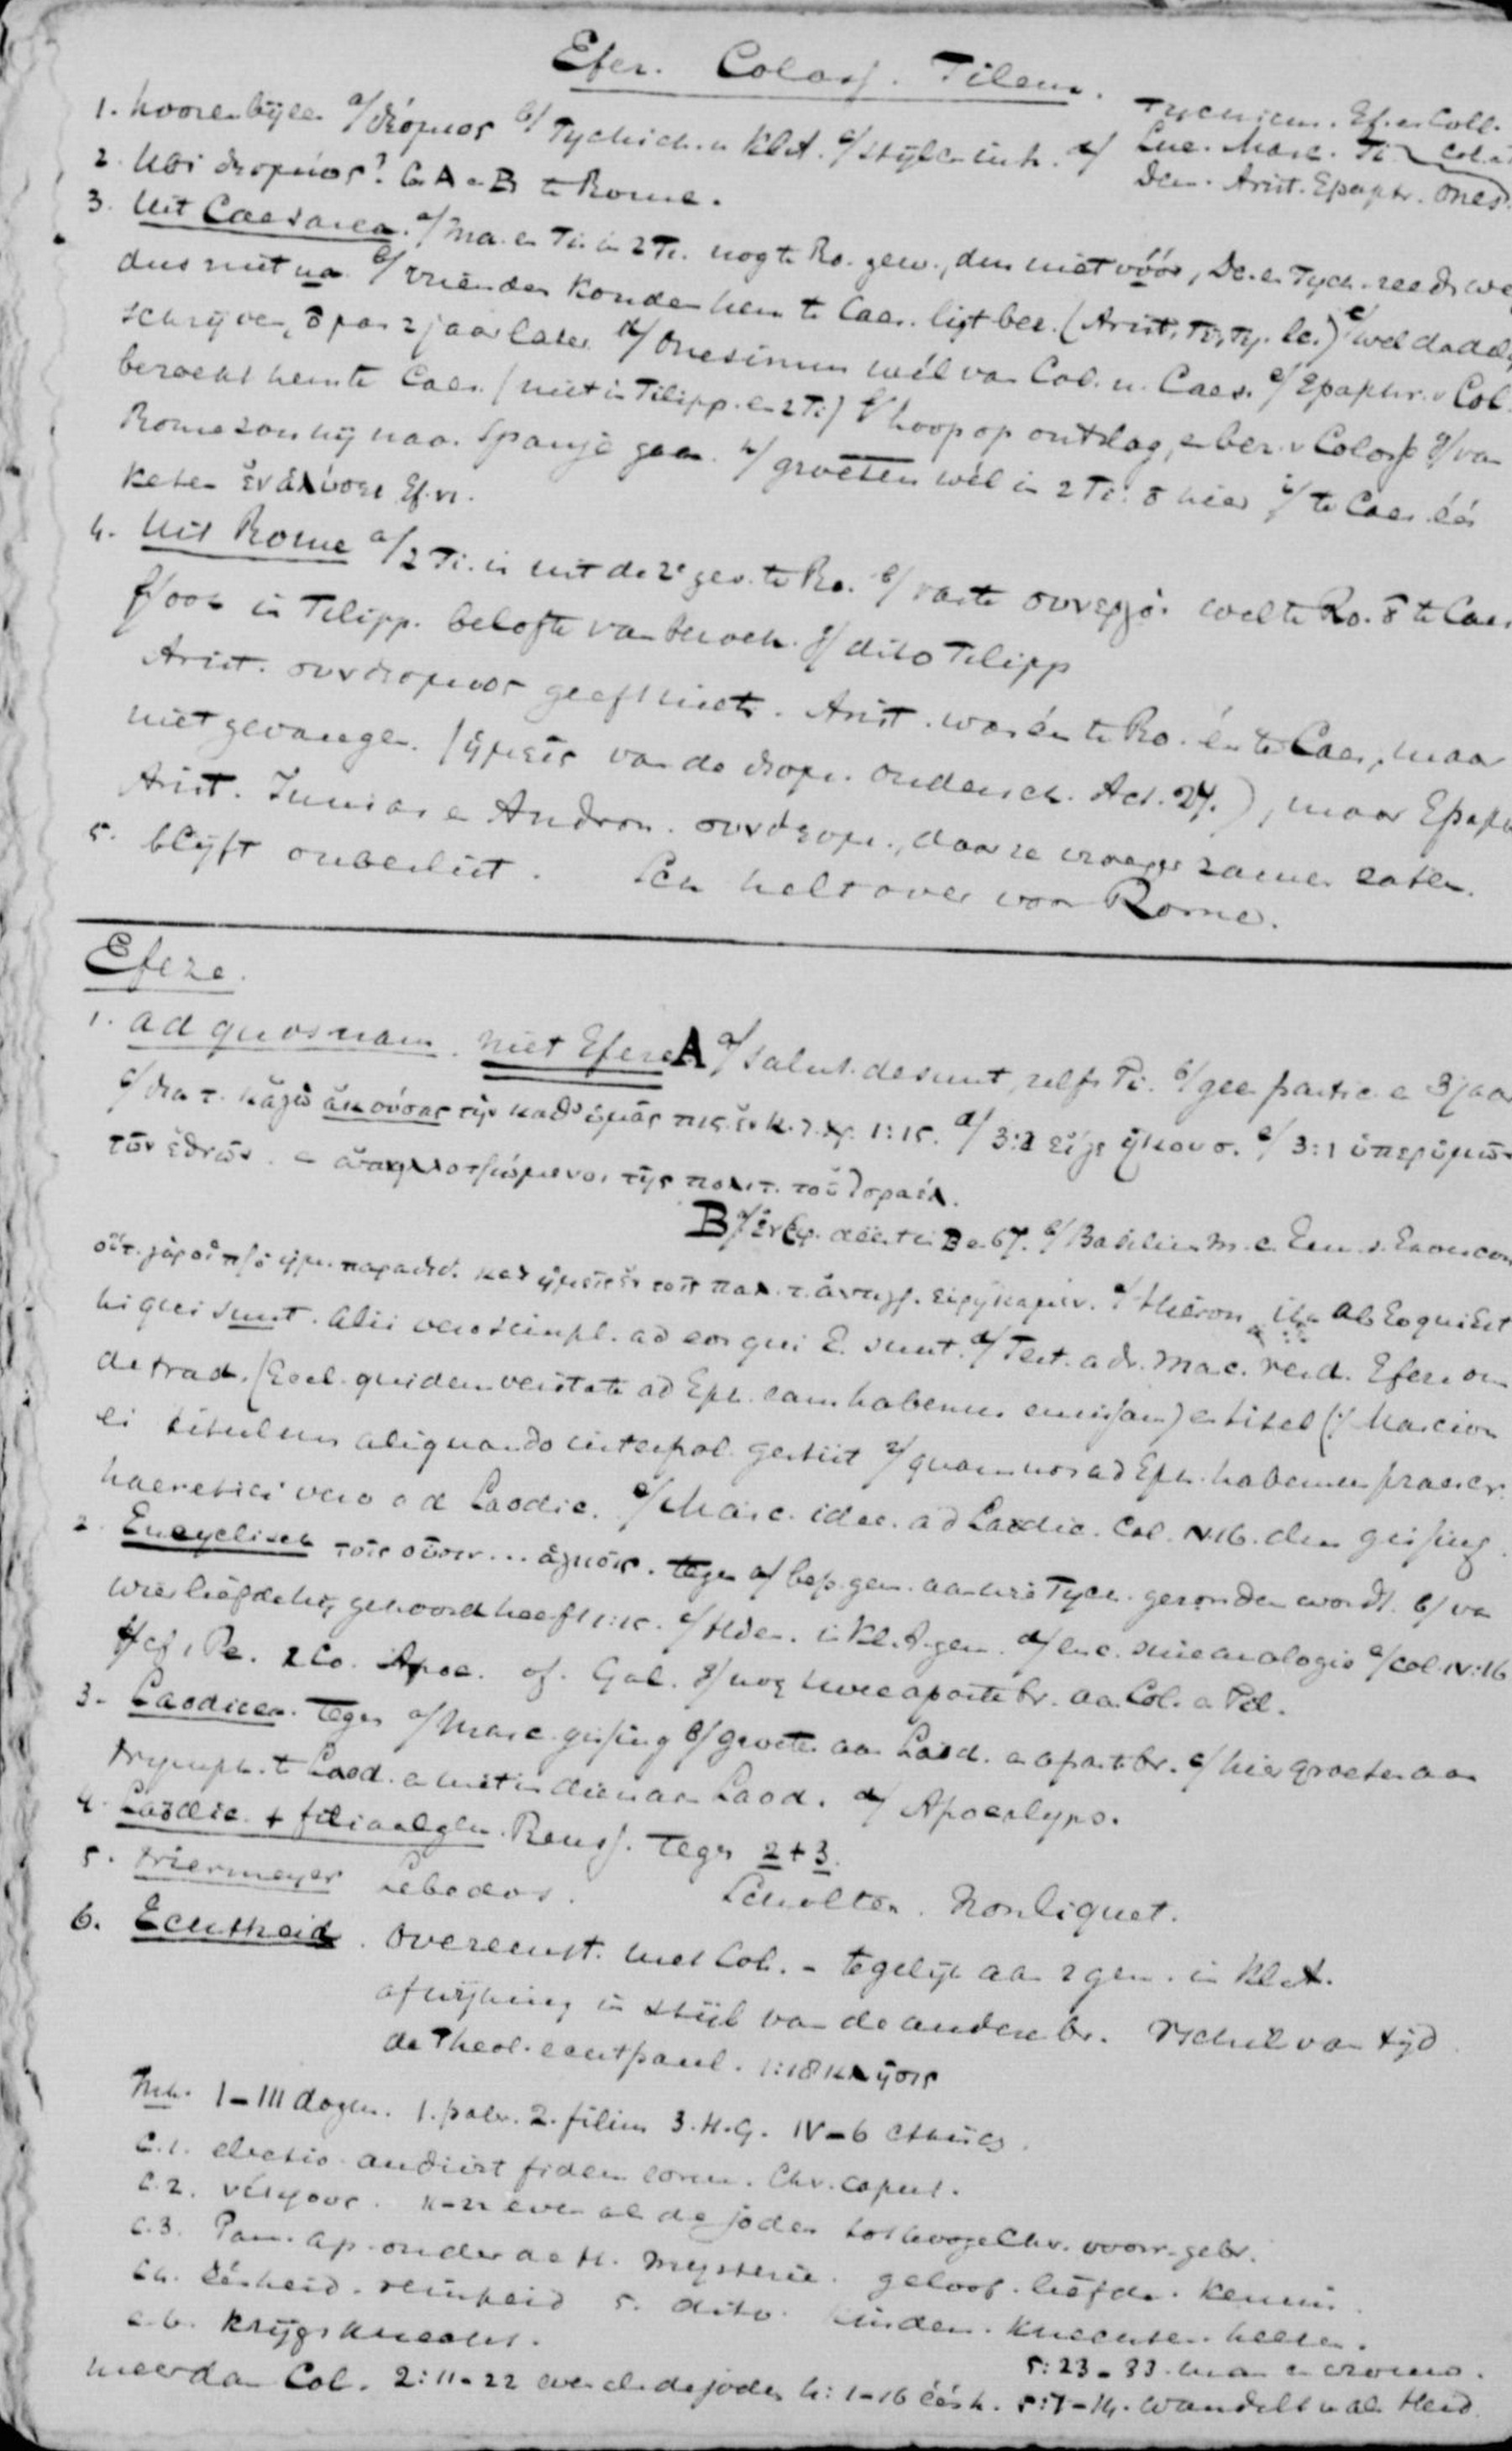 Efez. Coloss. Filem.
1. hooren bijeen a/ δέσμιος b/ Tychich. n. Kl. A. c/ stijl en inh. d/ Tychicus. Ef. en Coll.
Luc. Marc. Ti. Col. 
Dem. Arist. Epaphr. Ones.
2. Ubi δέσμιος? Cs A en B te Rome.
3. Uit Caesarea. a/ Ma. en Ti. in 2 Ti. nog te Ro. gew., dus niet vóór, De. en Tych. reeds weg
dus niet na b/ vrienden konden hem te Caes. ligt bez. (Arist. Ti, Ty. Lc.) c/ wel dadelijk
schrijven, ō pas 2 jaar later d/ Onesimus wél van Col. n. Caes. e/ Epaphr. v Col.
bezoekt hem te Caes. (niet in Filipp. en 2 Ti) f/ hoop op ontslag, en bez. v Coloss g/ van
Rome zou hij naar Spanje gaan. h/ groeten wél in 2 Ti. ō hier i/ te Caes. één
keten ἐν ἁλύσει Ef. VI.
4. Uit Rome a/ 2 Ti. is uit de 2e gev. te Ro. b/ vaste συνεργοί wel te Ro. ō te Caes.
f/ ook in Filipp. belofte van bezoek. g/ dito Filipp
Arist. συνδεσμιος geeft niets. Arist. was én te Ro. én te Caes, maar
niet gevangen. (ἡμεῖς van de δεσμ. ondersch. Act. 27.), maar Epaph
Arist. Junias en Andron. συνδεσμ., daar ze vroeger zamen zaten.
5. blijft onbeslist. Sch helt over voor Rome.
Efeze.
1. ad quosnam. niet Efeze A a/ salut. desunt, zelfs Ti. b/ geen partic. en 3 jaar
c/ δια τ. κἀγὼ ἀκούσας τὴν καθ' ὑμᾶς πισ. ἐν κ. Ἰ. Χρ. 1:15. d/ 3:2 εἴγε ἠκουσ. e/ 3:1 ὑπερ ὑμῶν
τῶν ἐθνῶν. en ἀπηλλοτριώμενοι τῆς πολιτ. τοῦ Ἰσραέλ.
B a/ ἐν Ἐφ. deest in B en 67. b/ Basilius M. c. Eun.
οὕτ. γὰρ οἱ πρὸ ἡμ. παραδεδ. καὶ ἡμεῖς ἐν τοῖς παλ. τ. ἀντιγρ. εὑρήκαμεν. c/ Hieron. ita ab Eo qui Est
hi qui sunt. Alii vero simpl. ad eos qui E. sunt. d/ Tert. adv. Marc. verd. Efeze om
de trad. (Eccl. quidem veritate ad Eph. eam habemus emissam) en titel (1/ Marcion
ei titulum aliquando interpol. gestiit 2/ quam nos ad Eph. habemus praescr.
haeretici vero ad Laodic. e/ Marc. idee. ad Laodic. Col. IV:16. dus gissing.
2. Encyclisch τοῖς οὖσιν ... ἁγίοις. tegen a/ bep. gem. aan wie Tych. gezonden wordt. b/ van
wier liefde hij gehoord heeft 1:15. c/ Hdn. in Kl. A. gem. d/ enc. sine analogie e/ Col. IV:16
f/ cf. 1 Pe. 2 Co. Apoc. of. Gal. g/ nog twee aparte br. aan Col. en Fil.
3. Laodicea. Tegen a/ Marc. gissing b/ groeten aan Laod. en apart br. c/ hier groeten aan
Nymph. te Laod. en niet in dien aan Laod. d/ Apocalyps.
4. Laodic. + filiaalgem. Reuss. Tegen 2 + 3.
5. Niermeyer Lebedos. Scholten. Non liquet.
6. Echtheid. Overeenst. met Col. - tegelijk aan 2 gem. in Kl. A.
afwijking in stijl van de andere br. Verschil van tijd
de Theol. echt paul. 1:18 κλῆσις
Inh. I-III dogm. 1. pater. 2. filius 3. H.G. IV-6 ethica.
C.1. electio. audiirt fidem eorum. Chr. caput.
C.2. νέκρους. 11-22 even als de joden tot hooge Chr. voorr. gebr.
C.3. Pau. ap. onder de H. Mysterie. geloof. liefde. kennis.
C4. éénheid. reinheid 5. dito. kinderen. knechten. heeren.
c. 6. krijgsknecht. 5:23-33. man en vrouw.
meer dan Col. 2:11-22 even als de joden 4:1-16 éénh. 5:7-14. wandelt n. als Heid.